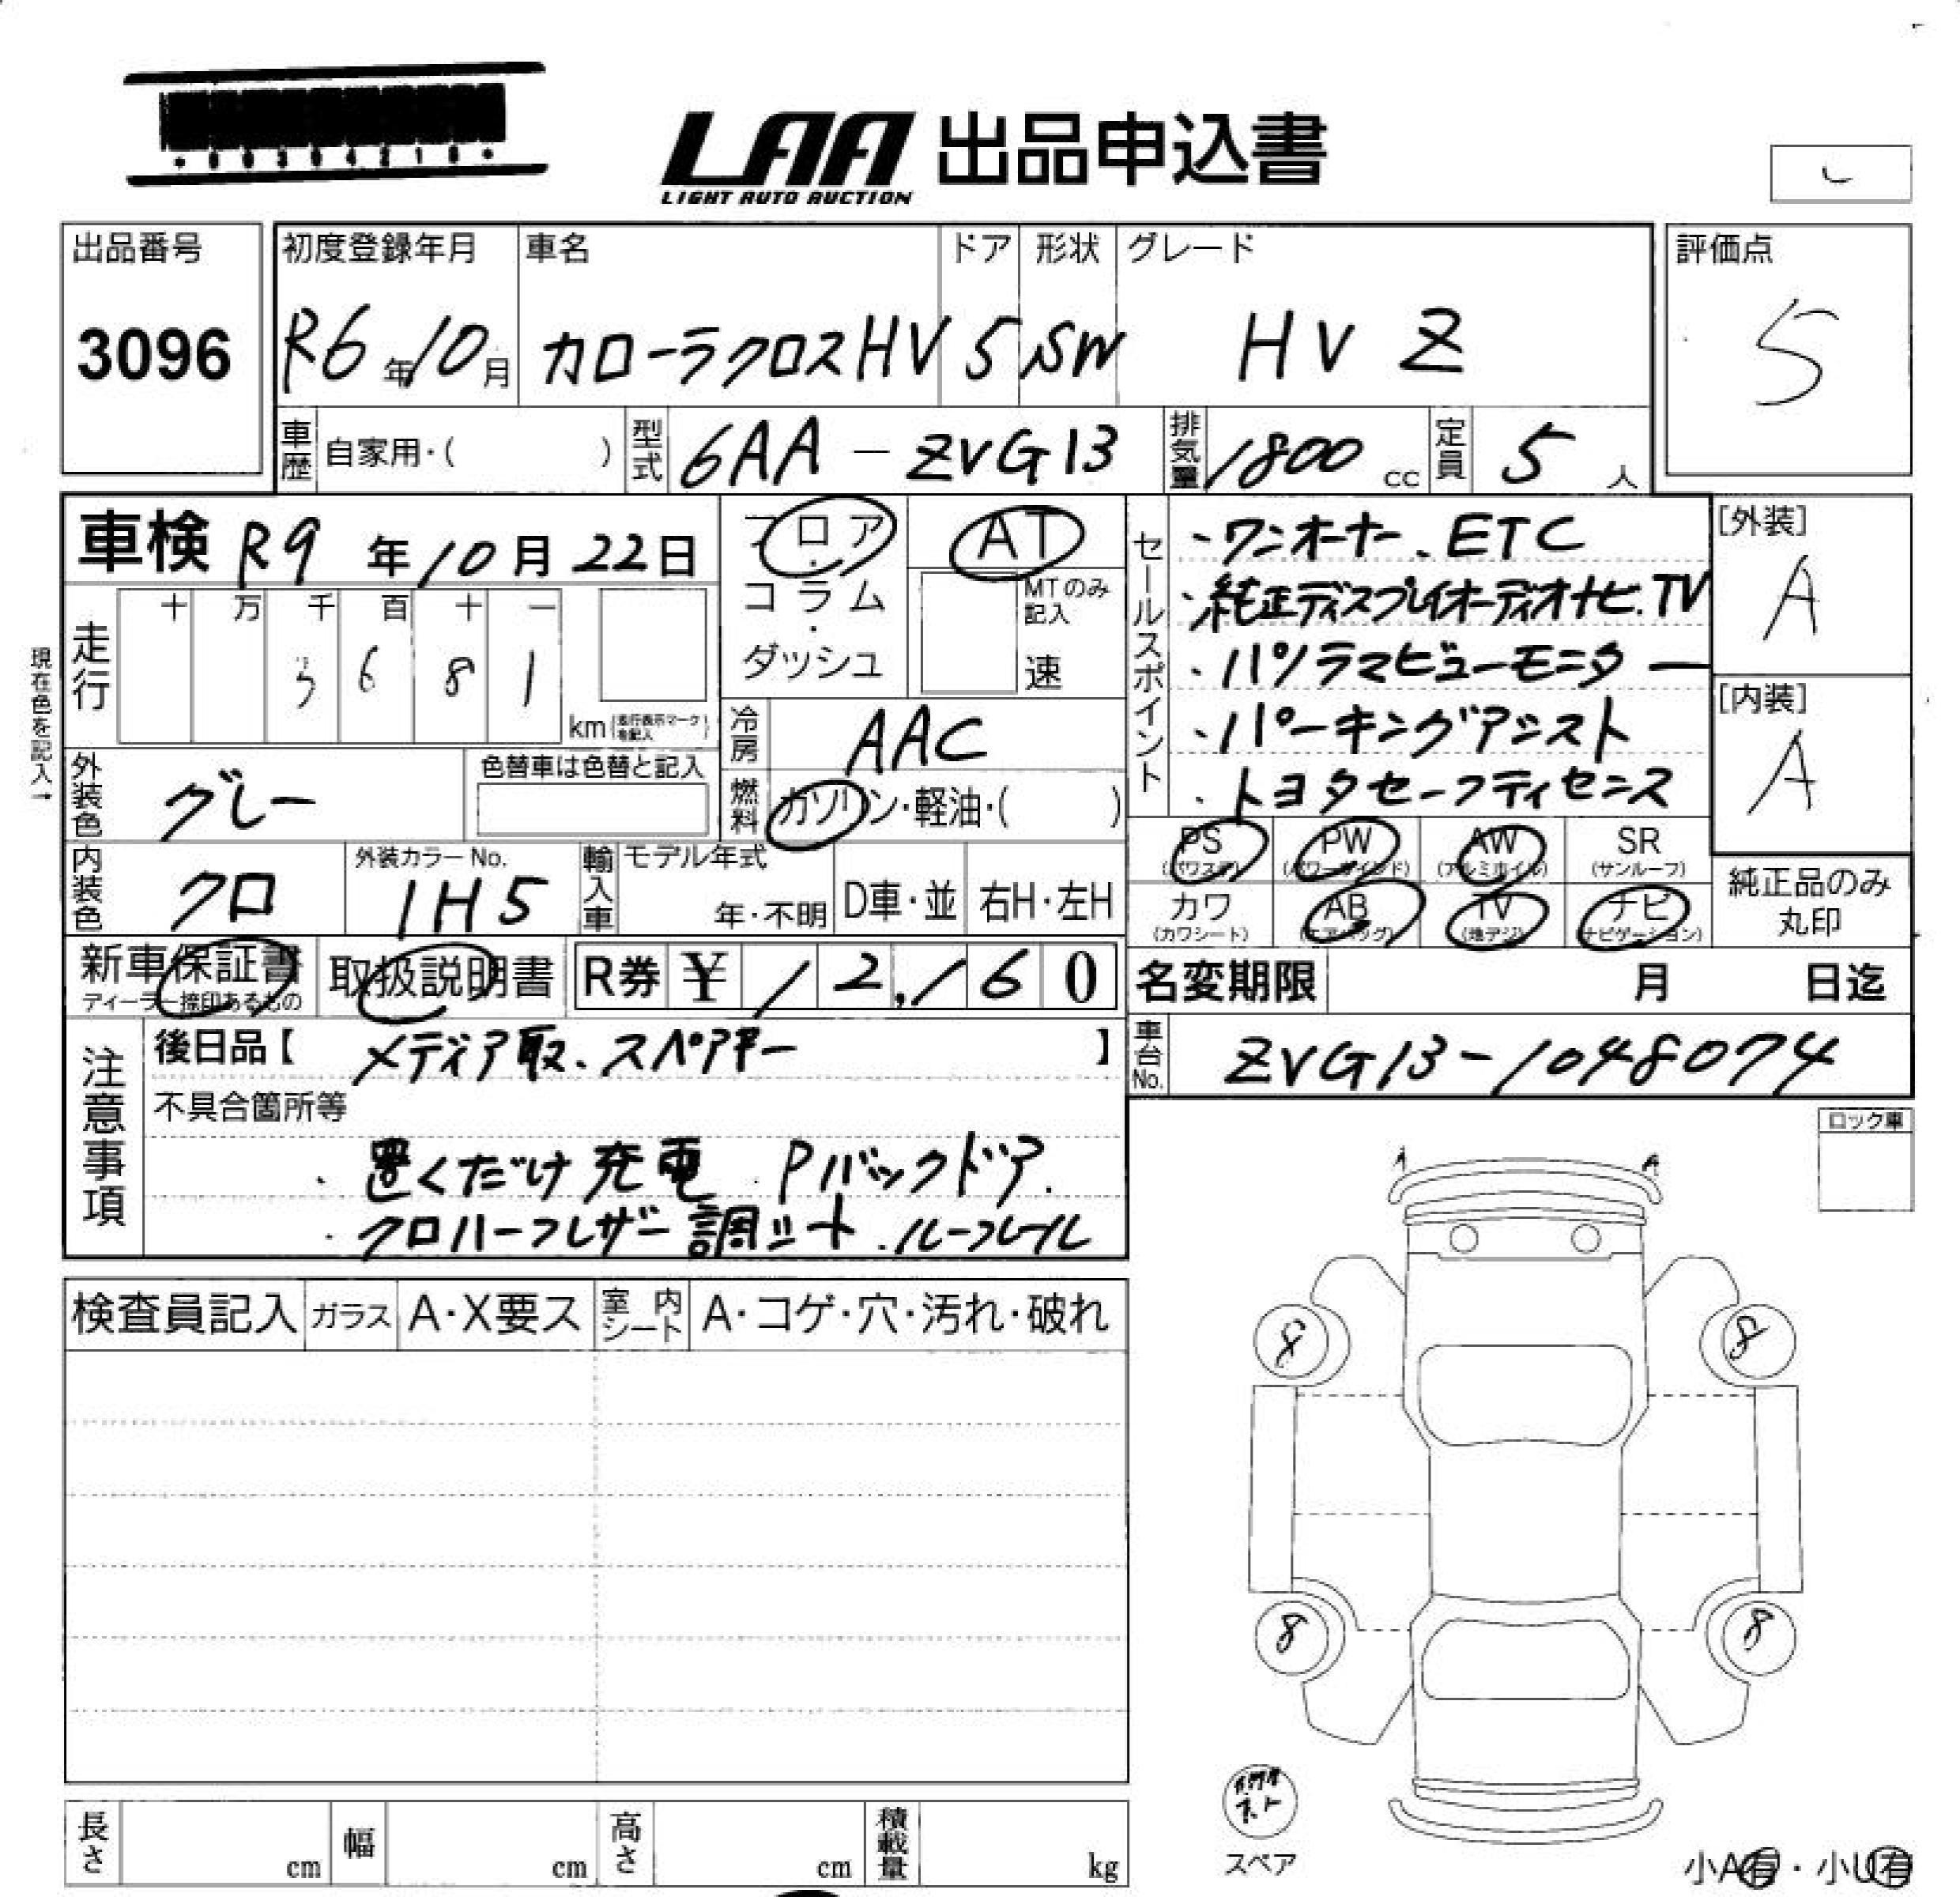 LAA 出品申込書
LIGHT AUTO AUCTION
出品番号
3096
初度登録年月
R6年10月
車名
カローラクロスHV
ドア
5
形状
SW
グレード
HV Z
評価点
5
車歴 自家用・( )
型式 6AA-ZVG13
排気量 1800 cc
定員 5 人
車検 R9年10月22日
現在色を記入→
走行 十 万 千 百 十 一
5 6 8 1
km (走行表示マークを記入)
フロア・コラム・ダッシュ
AT
MTのみ記入
速
冷房 AAC
燃料 ガソリン・軽油・( )
外装色 グレー
色替車は色替と記入
内装色 クロ
外装カラーNo.
1H5
輸入車 モデル年式
年・不明
D車・並
右H・左H
セールスポイント
・ワンオーナー、ETC
・純正ディスプレイオーディオナビ.TV
・パノラマビューモニター
・パーキングアシスト
・トヨタセーフティセンス
[外装]
A
[内装]
A
PS (パワステ)
PW (パワーウインド)
AW (アルミホイル)
SR (サンルーフ)
カワ (カワシート)
AB (エアバッグ)
TV (地デジ)
ナビ (ナビゲーション)
純正品のみ丸印
新車保証書
ディーラー捺印あるもの
取扱説明書
R券 ¥12,160
名変期限 月 日迄
車台No. ZVG13-1048074
注意事項
後日品【 メディア取、スペアキー 】
不具合箇所等
・置くだけ充電 Pバックドア.
・クロハーフレザー調シート.ルーフレール
ロック車
A A
検査員記入 ガラス A・X要ス 室内シート A・コゲ・穴・汚れ・破れ
8 8
8 8
スペア
長さ cm 幅 cm 高さ cm 積載量 kg
小A有・小U有